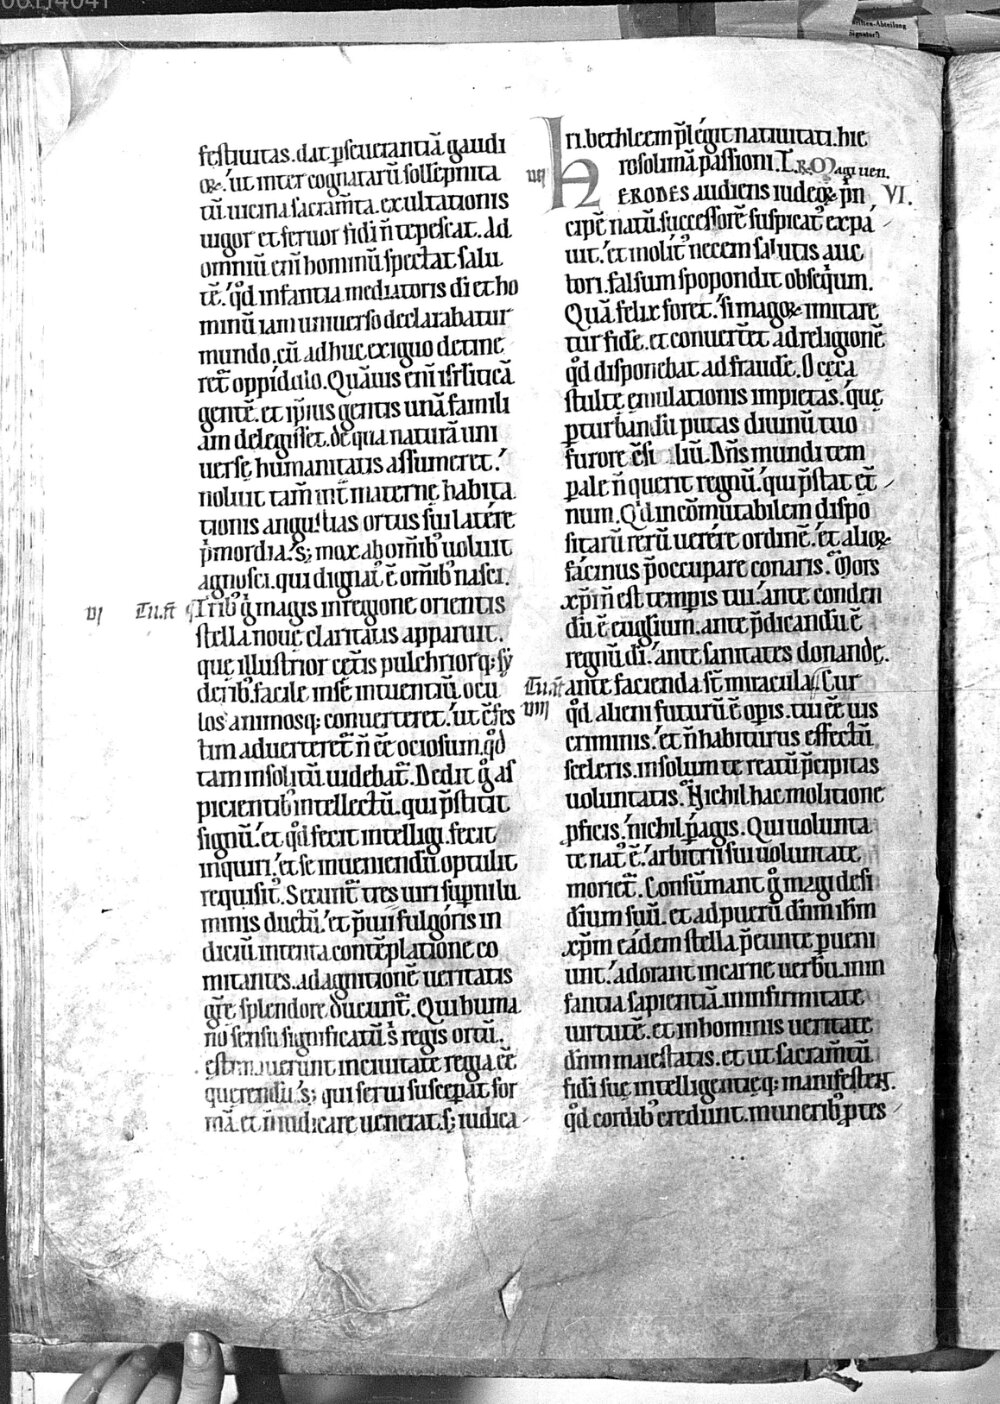 festiuitas. dat pseuerantiā gaudi
oꝝ. ut inter cognatarū sollēpnita
tū uicina sacram̄ta. exultationis
uigor et feruor fidi n̄ tepescat. Ad
omniū eni hominū spectat salu
tē. qd infantia mediatoris di et ho
minū iam uniuerso declarabatur
mundo. cū adhuc exiguo detine
ret̄ oppidulo. Quāuis eni isrliticā
gentē. et ipsius gentis unā famili
am delegisset. de qua naturā uni
uerse humanitatis assumeret.
noluit tam̄ int̄ materne habita
tionis angustias ortus sui latere
pmordia. s; mox ab omīb uoluit
agnosci. qui dignat̄ ē omīb nasci.
Trib g̊ magis in regione orientis
stella noue claritatis apparuit.
que illustrior cet̄is pulchriorq; sy
derib facile in se intuentiū. ocu
los animosq; conuerteret. ut cōfes
tim aduerteret̄ n̄ eē ociosum. qd
tam insolitū uidebat̄. Dedit g̊ as
picientib intellectū. qui p̄stitit
signū. et qd fecit intelligi. fecit
inquiri. et se inueniendū optulit
requisit̄. Secunt̄ tres uiri supni lu
minis ductū. et p̄uii fulgoris in
dicium intenta contēplatione co
mitantes. ad agnitionē ueritatis
gr̄e splendore ducunt̄. Qui huma
no sensu significatū s̄ regis ortū.
estimauerunt in ciuitate regia eē
querendū. s; qui serui susceperat for
mā. et n̄ iudicare uenerat. s; iudica
ri. bethleem p̄legit natiuitati. hie
rosolimā passioni. L. R. Magi uen.
uij
HERODES audiens iudeoꝝ prin VI.
cipē natū. successorē suspicat̄ expa
uit. et molit̄ necem salutis auc
tori. falsum spopondit obsequm.
Quā felix foret. si magoꝝ imitare
tur fidē. et conuerteret̄ ad religionē
qd disponebat ad fraudē. O ceca
stulte emulationis impietas. que
pturbandū putas diuinū tuo
furore cōsiliū. Dn̄s mundi tem
pale n̄ querit regnū. qui p̄stat et̄
num. Qd incōmutabilem dispo
sitarū rerū uertere ordinē. et alioꝝ
facinus p̄occupare conaris. Mors
xp̄i n̄ est tempis tui. ante conden
dū ē euglium. ante p̄dicandū ē
regnū di. ante sanitates donande.
ante facienda st̄ miracula. Cur
qd alieni futurū ē opis. tui eē uis
criminis. et n̄ habiturus effectū
sceleris. in solum te reatū p̄cipitas
uoluntatis. Nichil hac molitione
pficis. nichil pagis. Qui uolunta
te nat̄ ē. arbitrii sui uoluntate
moriet̄. Consūmant g̊ magi desi
dium suū. et ad puerū dn̄m ihm
xp̄m eadem stella p̄eunte pueni
unt. adorant in carne uerbū. in in
fantia sapientiā. in infirmitate
uirtutē. et in hominis ueritate
dn̄m maiestatis. et ut sacram̄tū
fidi sue intelligentieq; manifestent.
qd cordib credunt. munerib ptes
vi